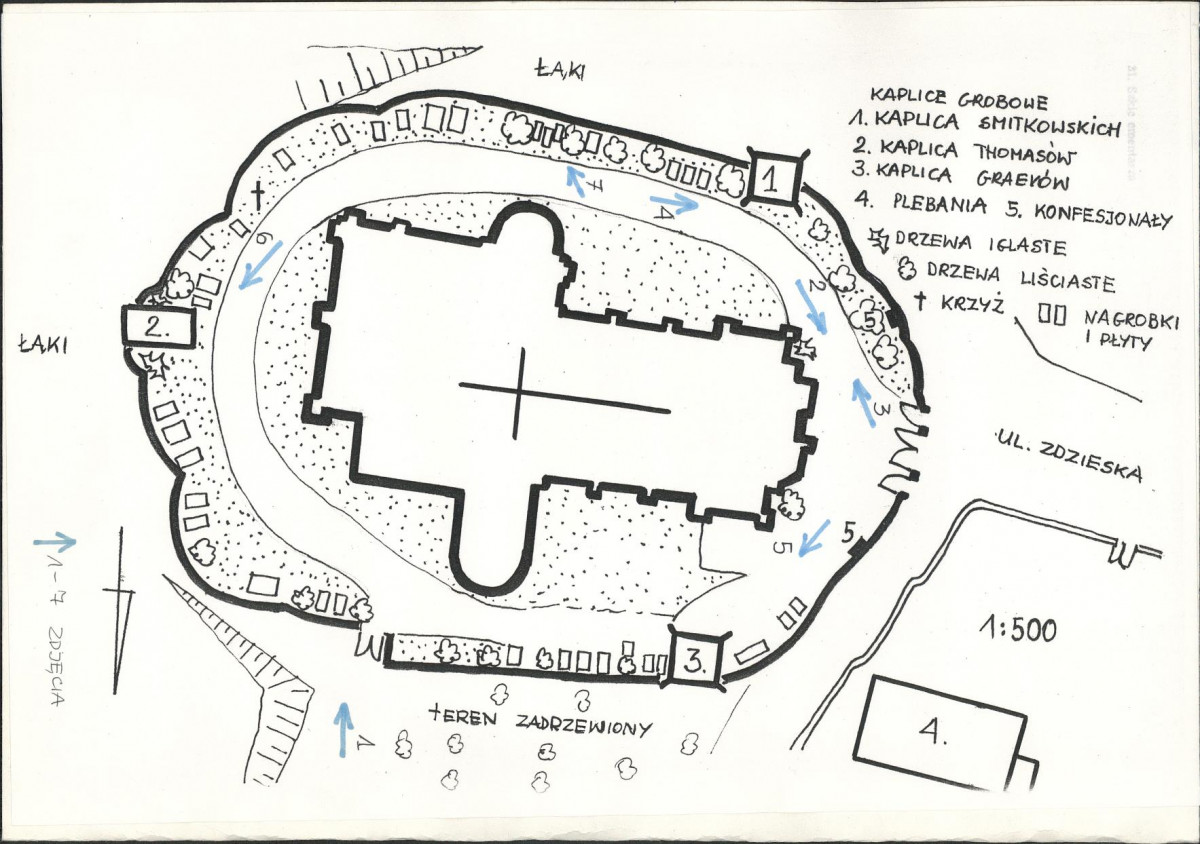 ŁĄKI
KAPLICE GROBOWE
1. KAPLICA SMITKOWSKICH
2. KAPLICA THOMASÓW
3. KAPLICA GRAEVÓW
4. PLEBANIA 5. KONFESJONAŁY
DRZEWA IGLASTE
DRZEWA LIŚCIASTE
KRZYŻ
NAGROBKI
I PŁYTY
1
7
4
6
2
2.
5
3
ŁĄKI
UL. ZDZIESKA
5
5
1-7 ZDJĘCIA
1:500
3.
TEREN ZADRZEWIONY
1
4.